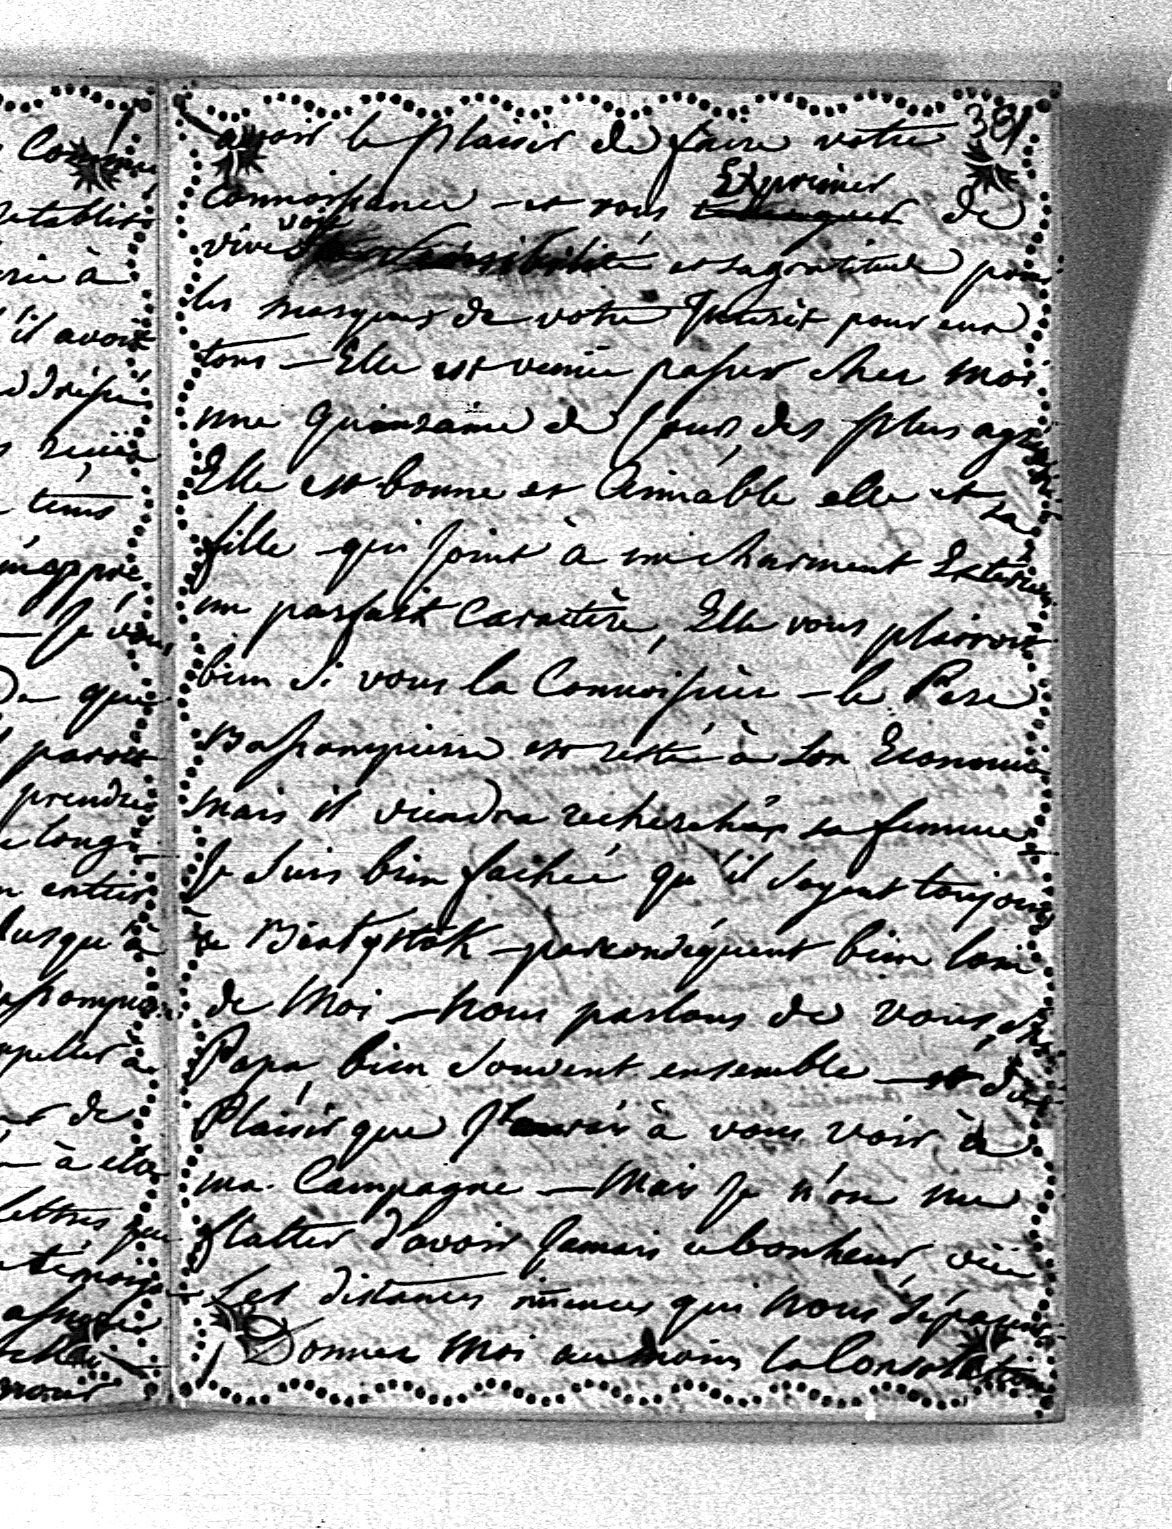 Comme
retablir
rie à
'il avoit
tems
Je vous
que
parois
prendre
long
entier
Jusqu'à
de
à cette
lettres
381
avoir le plaisir de faire votre
Exprimer
connoissance – et vous temoigner de
vive sensibilité et sa gratitude pour
les marques de votre Interêt pour eux
tous – Elle est venüe passer chez moi
une Quinzaine de Jours, des plus
Elle est bonne et Aimable elle et sa
fille qui Joint à un charment Exterieur
un parfait Caractère, Elle vous plairoit
bien Si vous la Connoissiès – le Pere
Bassompierre est resté à Son Economie
mais il viendra recherchér sa femme
Je Suis bien fachée qu'il Soyent toujours
à Białystok – par conséquent bien loin
de Moi – Nous parlons de vous, cher
Papa bien Souvent ensemble – et du
Plaisir que J'aurois à vous voir, à
ma Campagne – Mais Je n'ose me
flatter d'avoir Jamais ce bonheur vüe
Les distances qui Nous Séparent
Donnez Moi au moins la Consolation